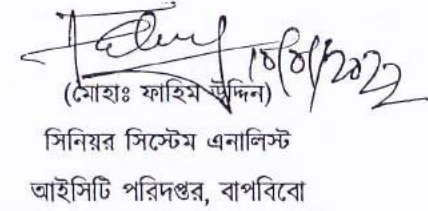 (মোহাঃ ফাহিম উদ্দিন)
সিনিয়র সিস্টেম এনালিস্ট
আইসিটি পরিদপ্তর, বাপবিবো